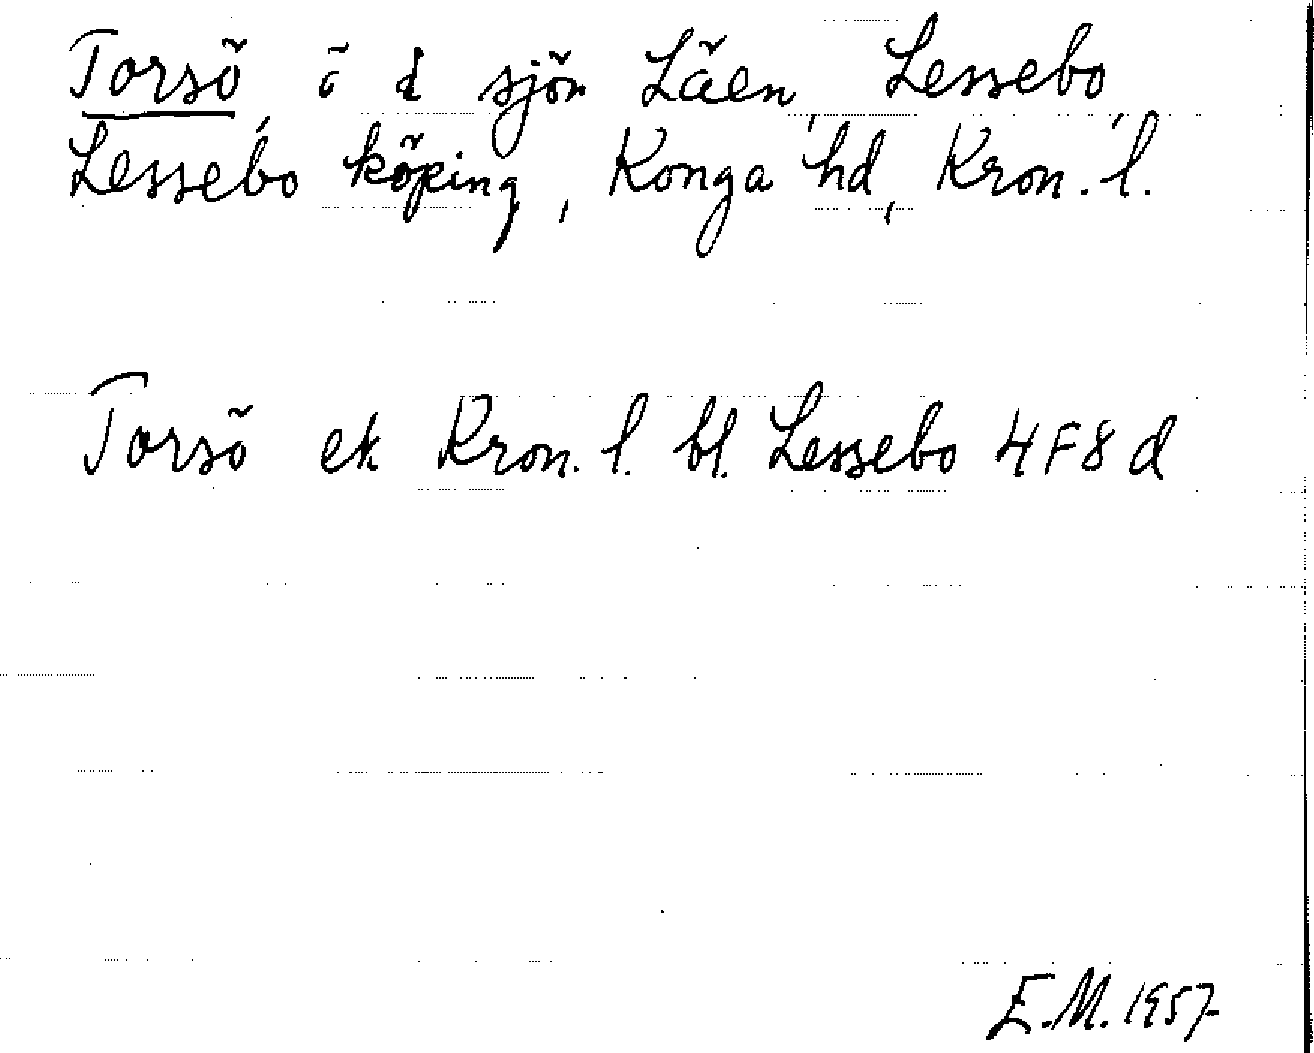 Torsö, ö i sjön Läen, Lessebo,
Lessebo köping, Konga hd, Kron. l.
Torsö ek Kron. l. bl. Lessebo 4F8d
E.M. 1957